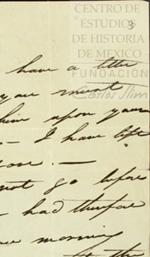 CENTRO DE
ESTUDIOS
DE HISTORIA
DE MEXICO
FUNDACIÓN
Carlos Slim
3
have a letter
you
him upon your
— I have left
—
not go before
— had therefore
morning
the